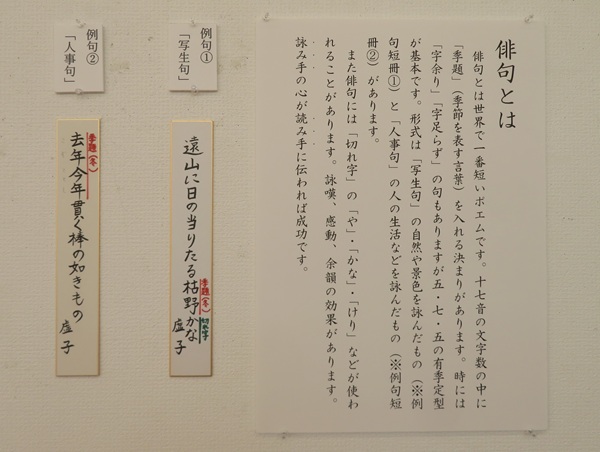 俳句とは
俳句とは世界で一番短いポエムです。十七音の文字数の中に
「季題」（季節を表す言葉）を入れる決まりがあります。時には
「字余り」「字足らず」の句もありますが五・七・五の有季定型
が基本です。形式は「写生句」の自然や景色を詠んだもの（※例
句短冊①）と「人事句」の人の生活などを詠んだもの（※例句短
冊②）があります。
また俳句には「切れ字」の「や」・「かな」・「けり」などが使わ
れることがあります。詠嘆、感動、余韻の効果があります。
詠み手の心が読み手に伝われば成功です。
例句①
「写生句」
遠山に日の当りたる枯野かな
季題（冬）
切れ字
虚子
例句②
「人事句」
季題（冬）
去年今年貫く棒の如きもの
虚子